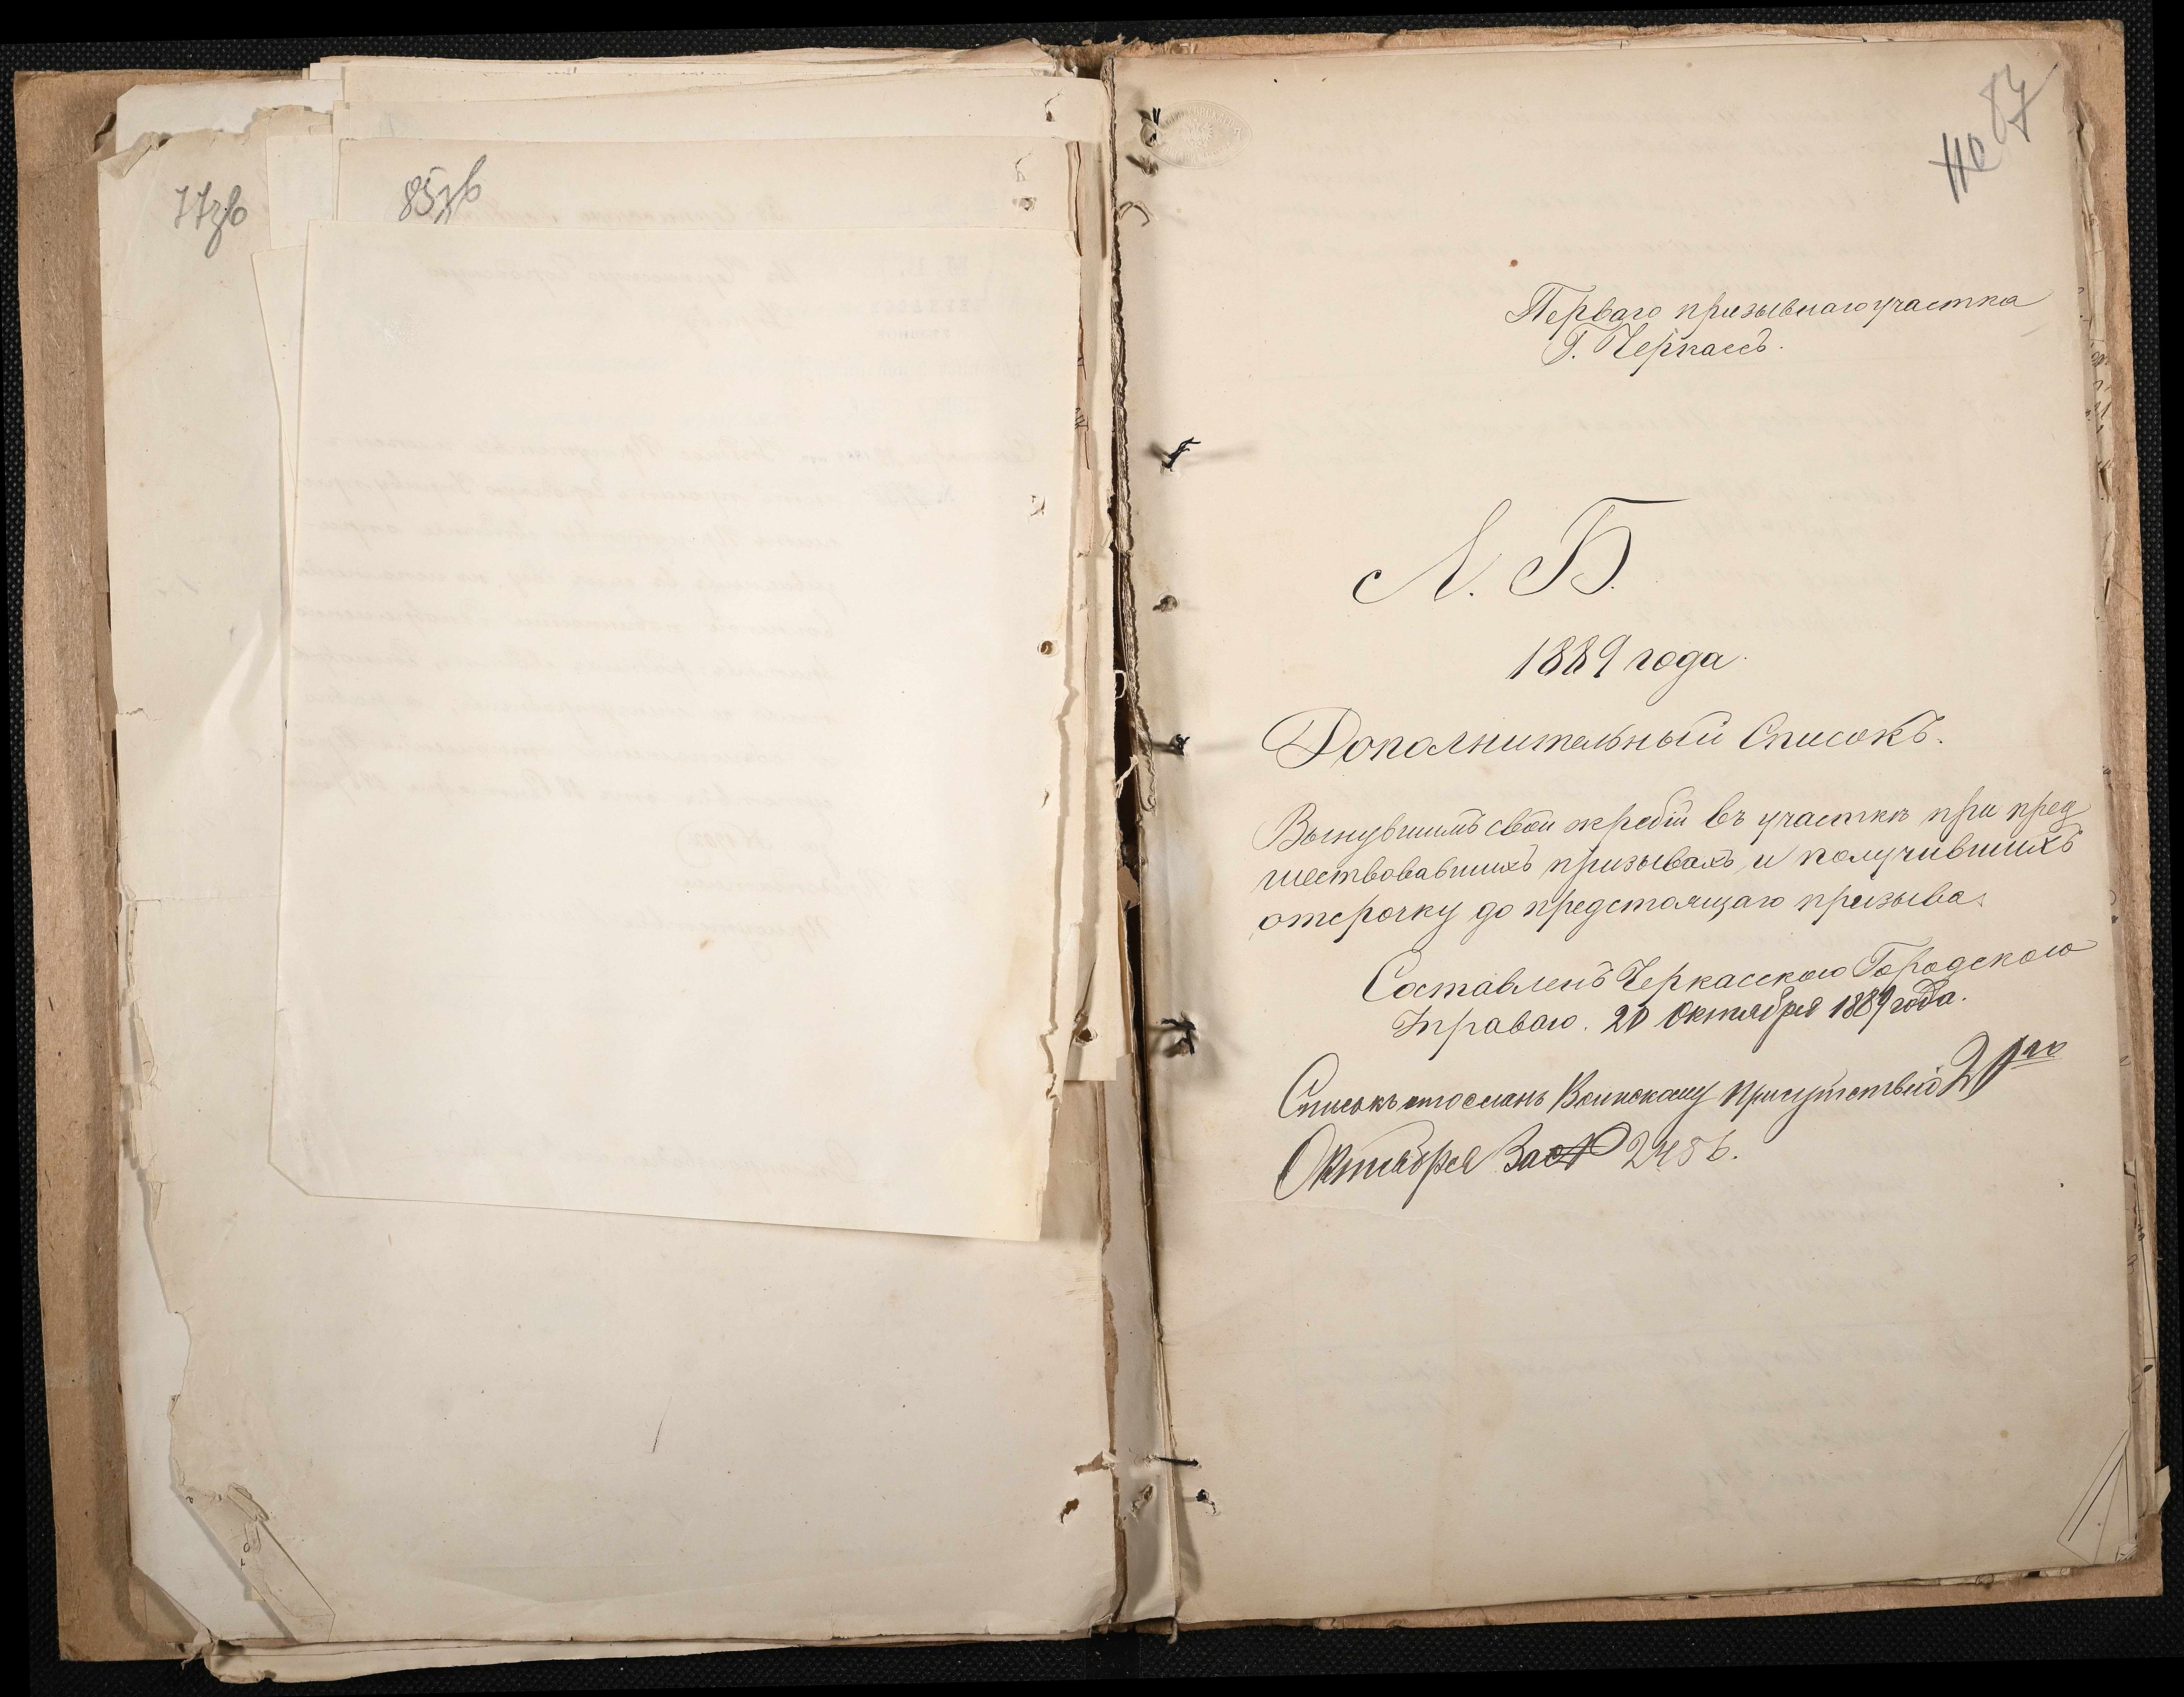 77зв
85зв
87
Перваго призывнаго участка
Г. Черкассъ.
Л. Б.
1889 года.
Дополнительный Списокъ.
Вынувшимъ свои жребіи въ участкѣ при пред
шествовавшихъ призывахъ и получившихъ
отсрочку до предстоящаго призыва.
Составленъ Черкасскою Городскою
Управою. 20 Октября 1889 года.
Списокъ отосланъ Воинскому присутствію 21го
Октября За № 2456.